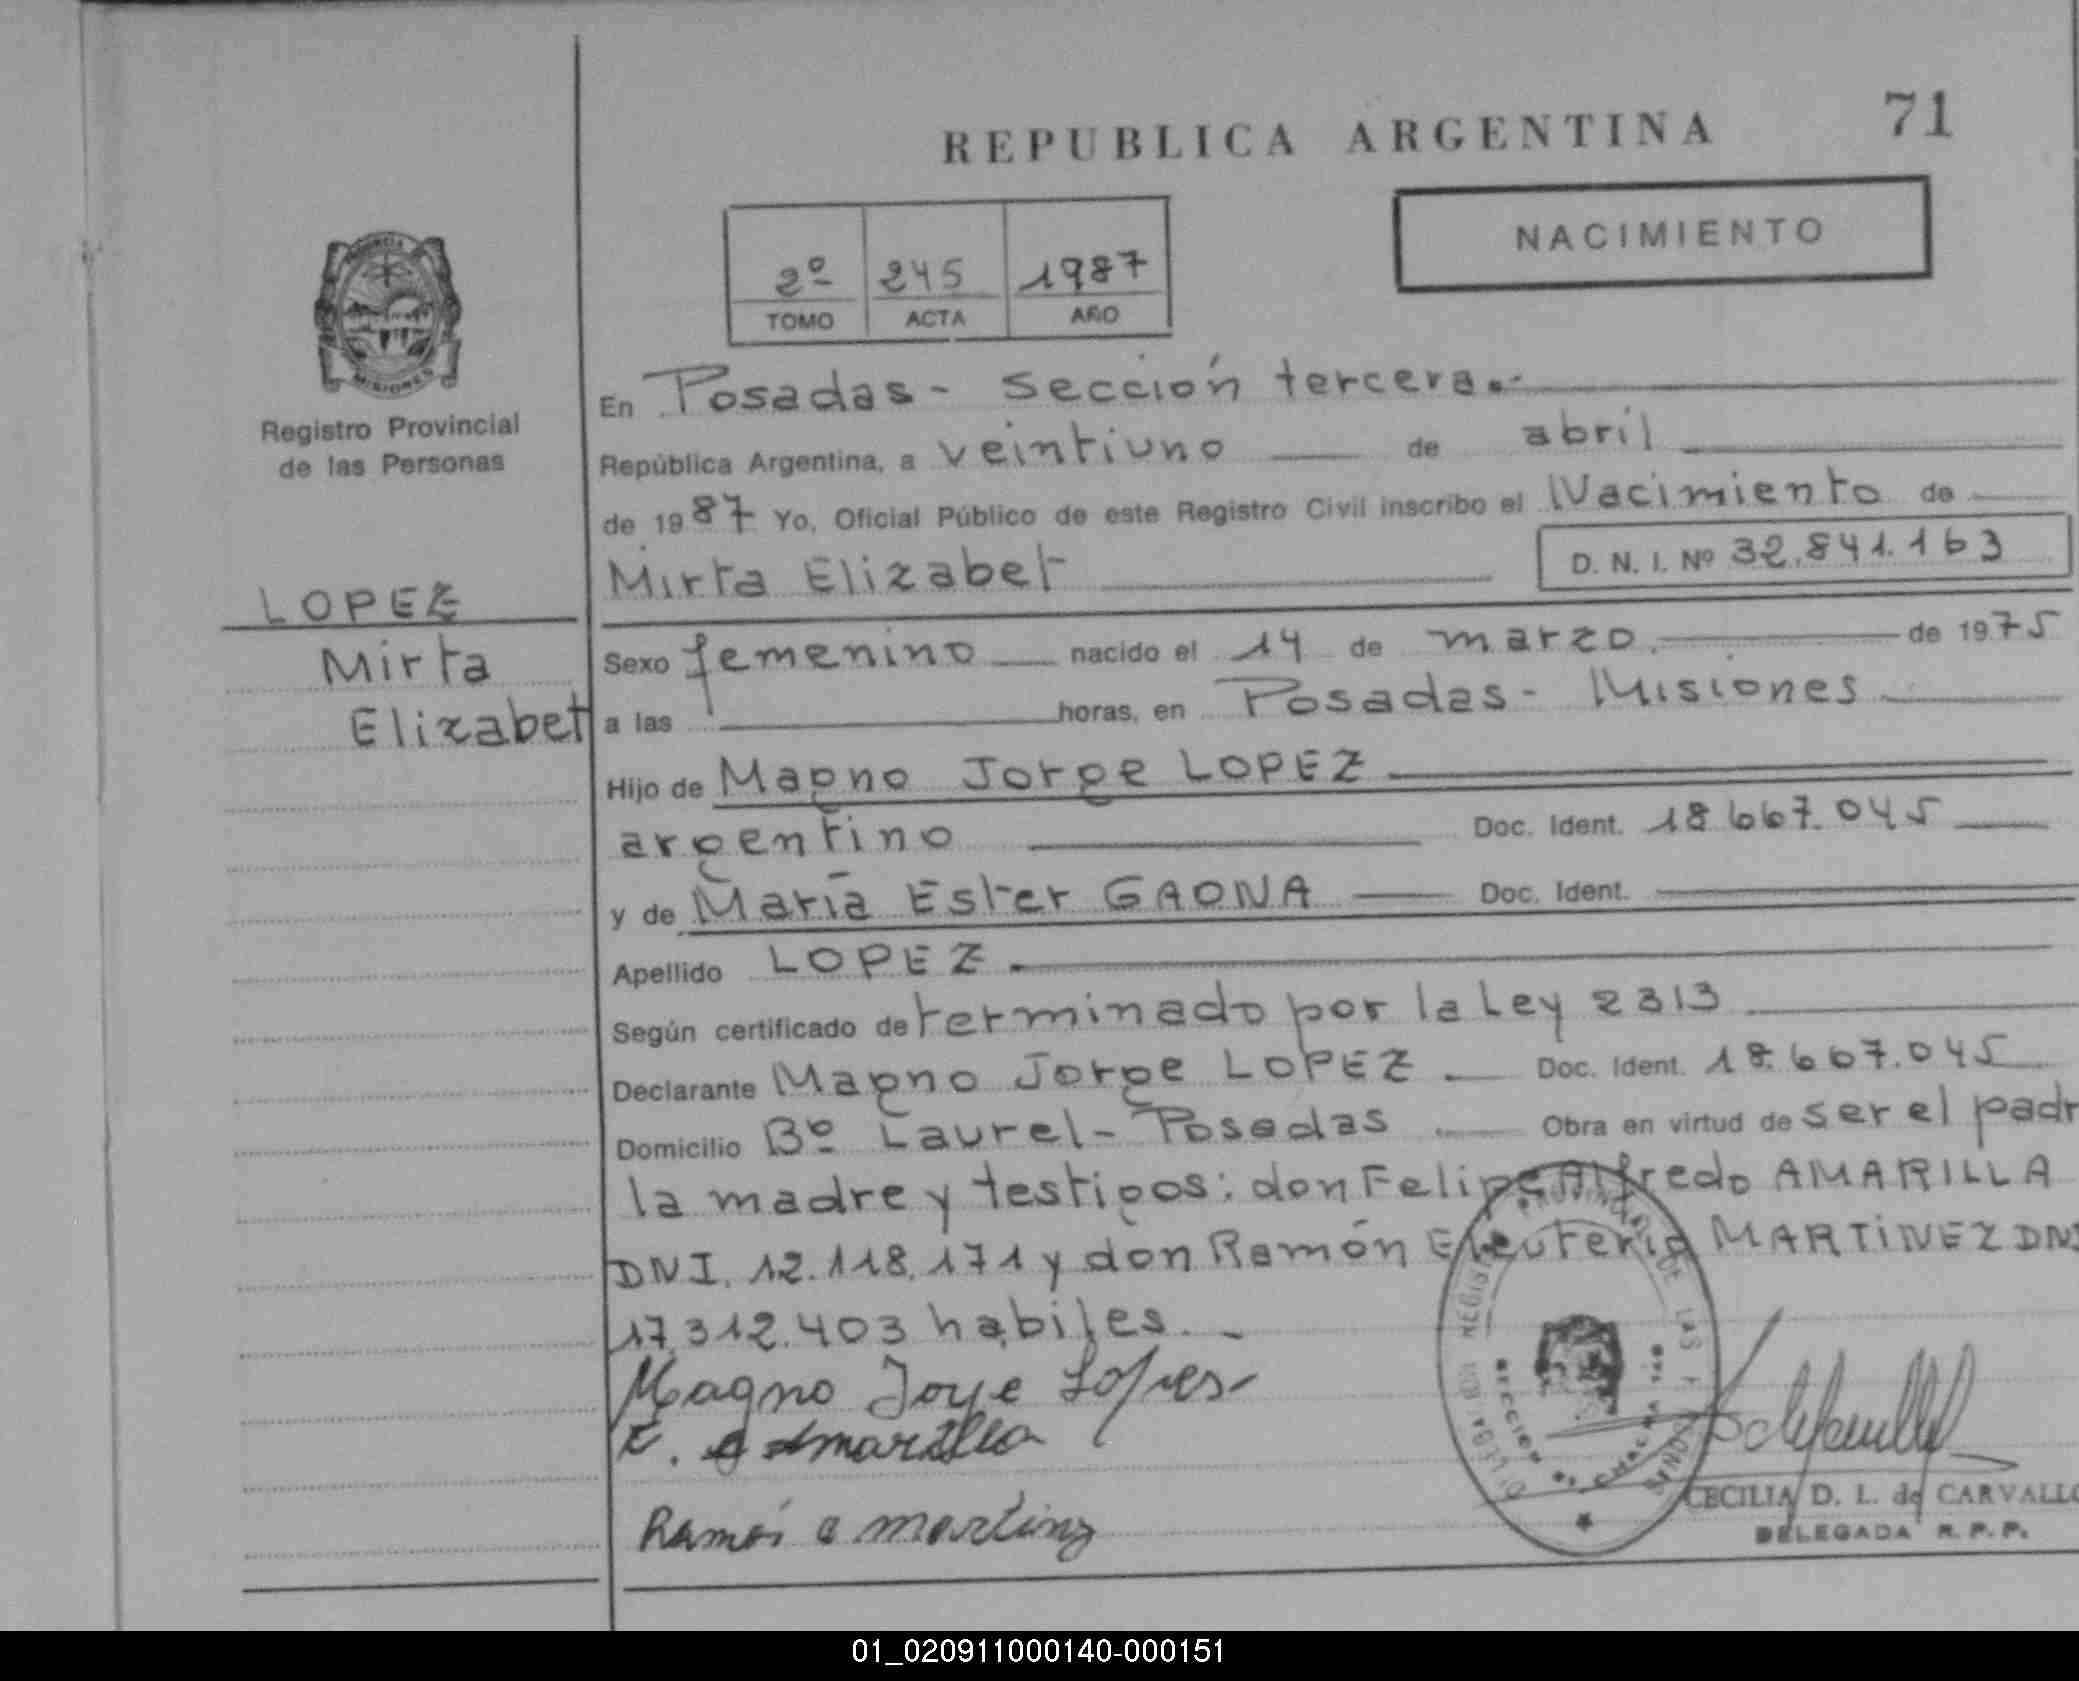 REPUBLICA ARGENTINA 71
NACIMIENTO
2º 245 1987
TOMO ACTA AÑO
MISIONES
Registro Provincial
de las Personas
LOPEZ
Mirta
Elizabet
En Posadas - Sección tercera.-
República Argentina, a veintiuno de abril
de 1987 Yo, Oficial Público de este Registro Civil inscribo el Nacimiento de
Mirta Elizabet D. N. I. Nº 32.841.163
Sexo femenino nacido el 14 de marzo. de 1975
a las horas, en Posadas - Misiones
Hijo de Magno Jorge LOPEZ
argentino Doc. Ident. 18.667.045
y de María Ester GAONA Doc. Ident.
Apellido LOPEZ.
Según certificado determinado por la Ley 2313
Declarante Magno Jorge LOPEZ. Doc. Ident. 18.667.045
Domicilio Bº Laurel - Posadas Obra en virtud de ser el padr
la madre y testigos: don Felipe Alfredo AMARILLA
DNI. 12.118.171 y don Ramón Eleuterio MARTINEZ DNI
17.312.403 habiles.
Magno Jorge Lopes
Amarilla
Ramón e martinz
CECILIA D. L. de CARVALLO
DELEGADA R. P. P.
01_020911000140-000151